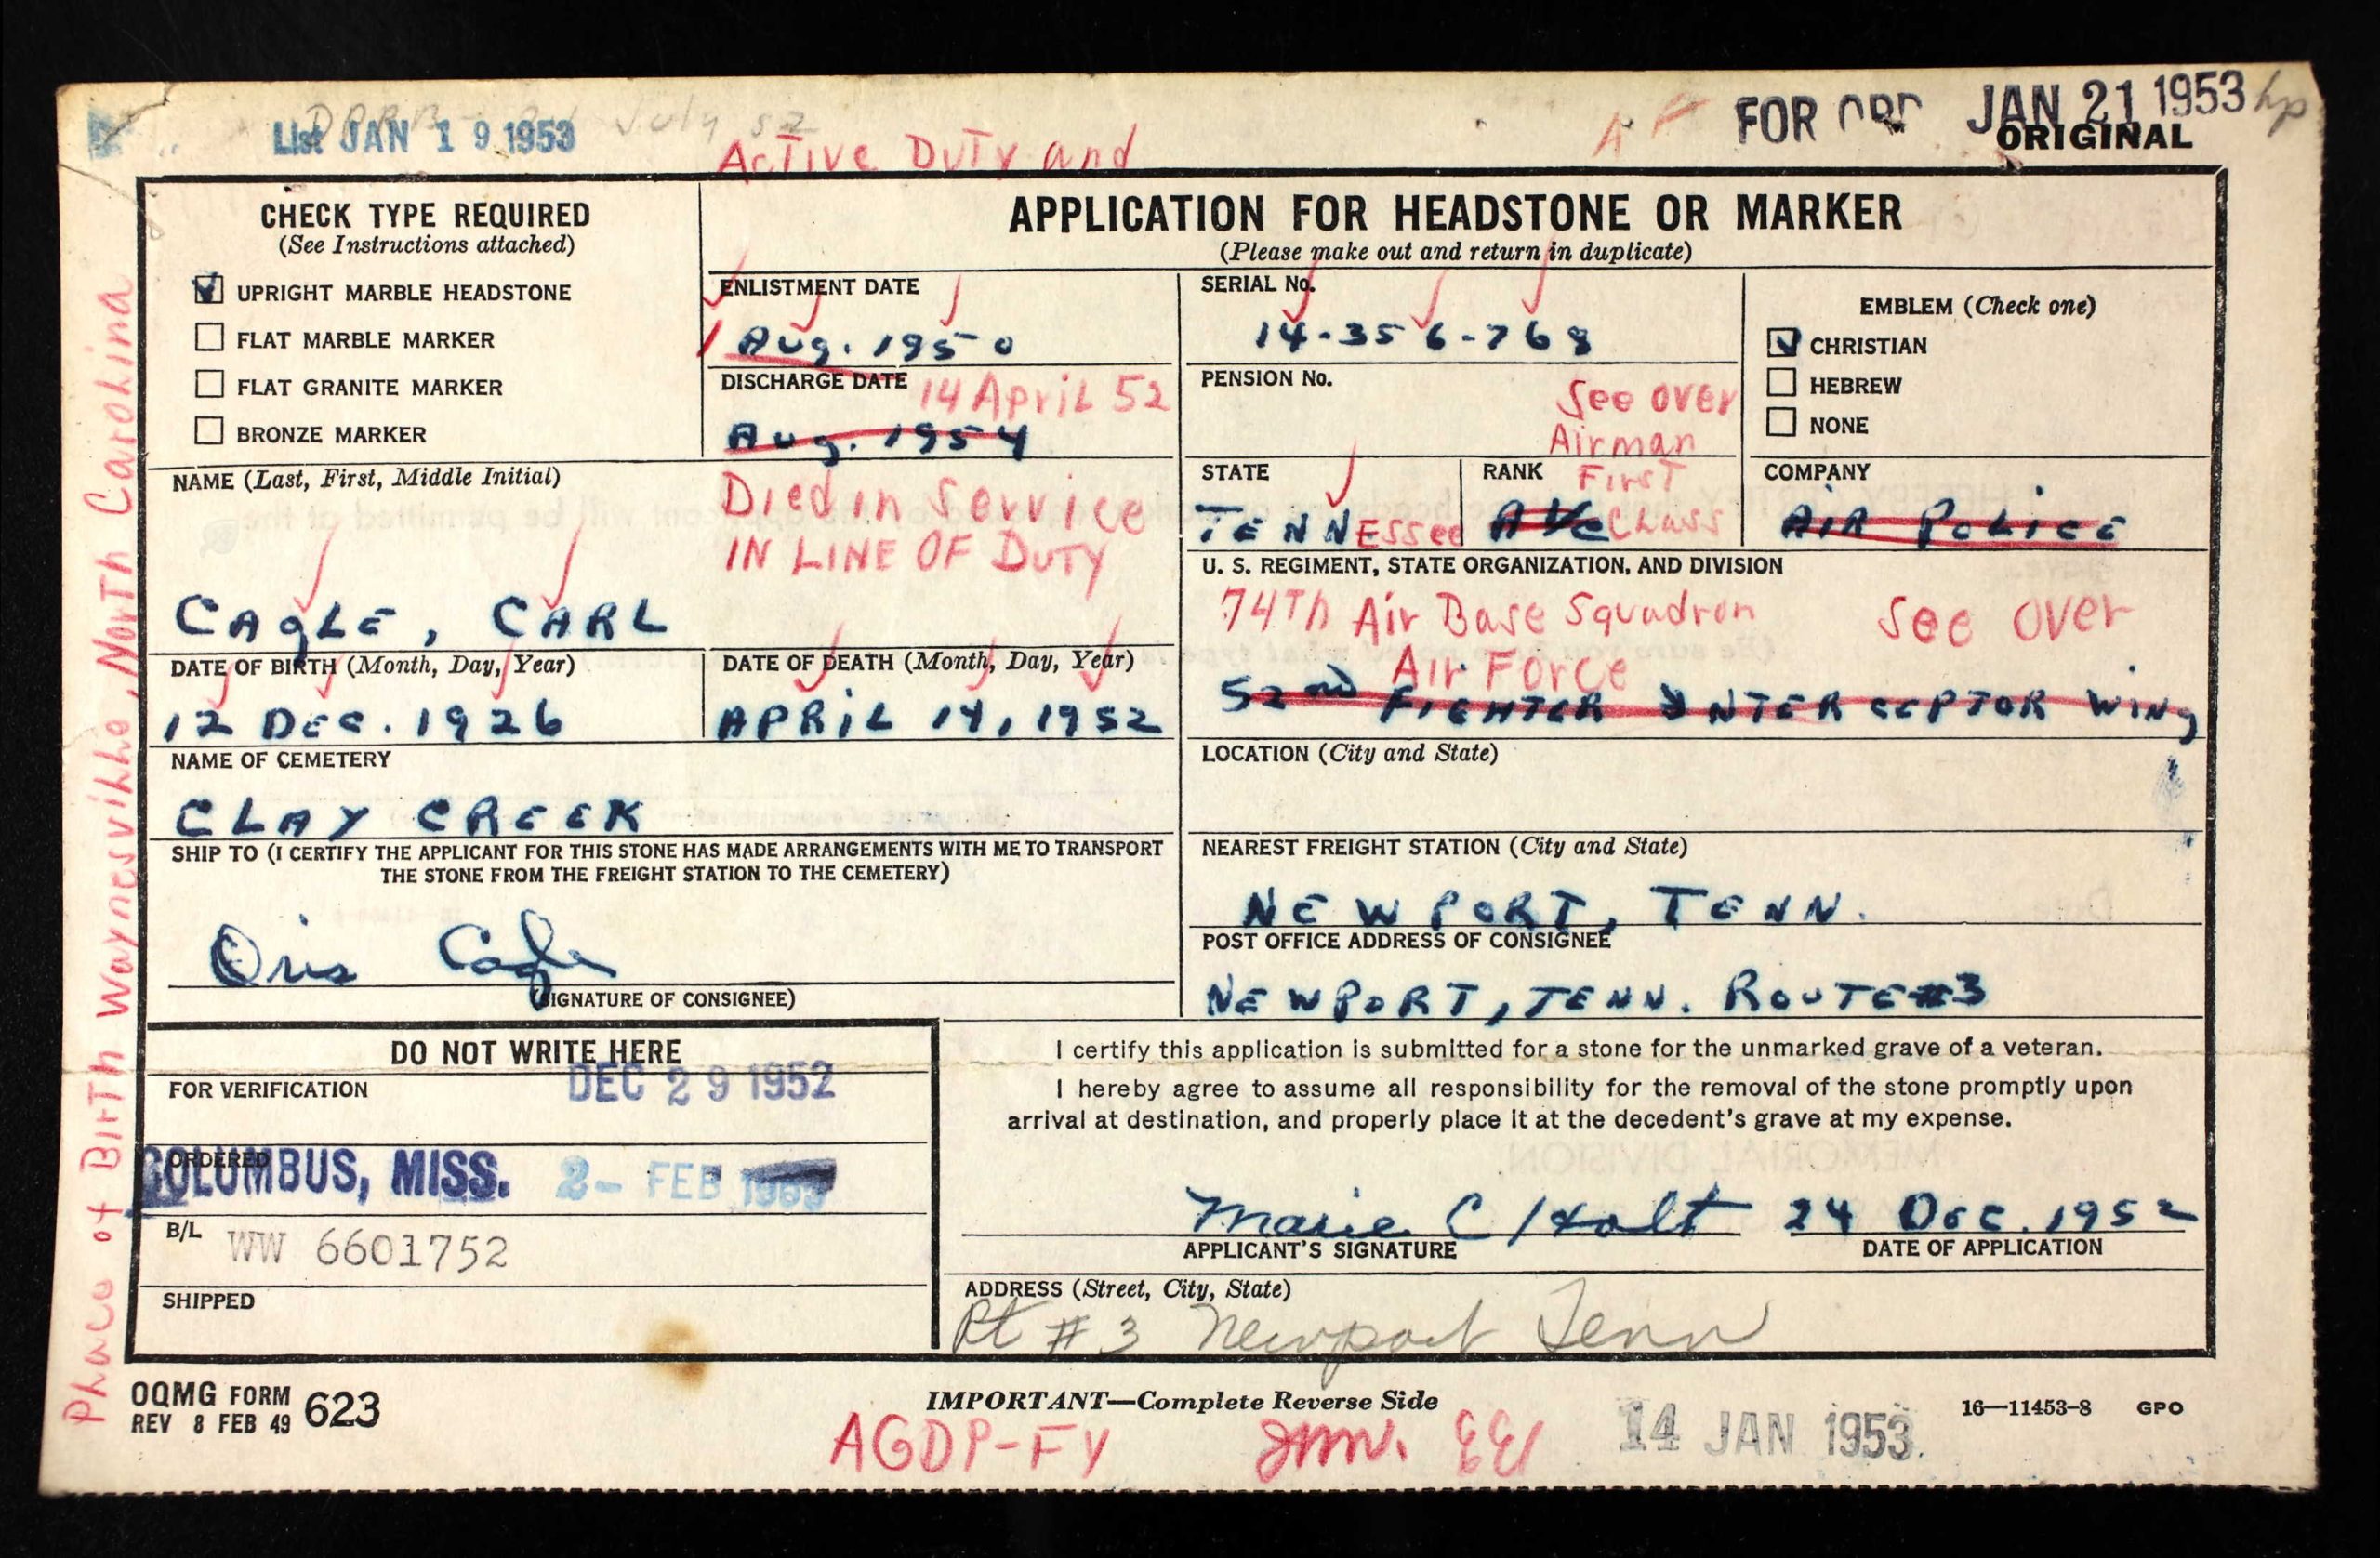 List JAN 19 1953
July 52
Active Duty and
FOR
JAN 21 1953
ORIGINAL
CHECK TYPE REQUIRED
(See Instructions attached)
UPRIGHT MARBLE HEADSTONE
FLAT MARBLE MARKER
FLAT GRANITE MARKER
BRONZE MARKER
APPLICATION FOR HEADSTONE OR MARKER
(Please make out and return in duplicate)
ENLISTMENT DATE
1 Aug. 1950
DISCHARGE DATE
14 April 52
Aug. 1954
SERIAL No.
14-356-768
PENSION No.
See over
EMBLEM (Check one)
CHRISTIAN
HEBREW
NONE
NAME (Last, First, Middle Initial)
CAgLE, CARL
Died in Service
IN LINE OF DuTY
STATE
TENNEssee
RANK
Airman
First
Class
COMPANY
AIR POLICE
U. S. REGIMENT, STATE ORGANIZATION, AND DIVISION
74Th Air Base Squadron
See over
Air Force
52nd FIGHTER INTERCEPTOR WINg
DATE OF BIRTH (Month, Day, Year)
12 DEC. 1926
DATE OF DEATH (Month, Day, Year)
APRiL 14, 1952
NAME OF CEMETERY
CLAY CREEK
LOCATION (City and State)
SHIP TO (I CERTIFY THE APPLICANT FOR THIS STONE HAS MADE ARRANGEMENTS WITH ME TO TRANSPORT
THE STONE FROM THE FREIGHT STATION TO THE CEMETERY)
Oris Cagle
(SIGNATURE OF CONSIGNEE)
NEAREST FREIGHT STATION (City and State)
NEWPORT, TENN.
POST OFFICE ADDRESS OF CONSIGNEE
NEWPORT, TENN. ROUTE #3
DO NOT WRITE HERE
FOR VERIFICATION
DEC 29 1952
ORDERED
COLUMBUS, MISS. 2- FEB 1953
B/L
WW 6601752
SHIPPED
I certify this application is submitted for a stone for the unmarked grave of a veteran.
I hereby agree to assume all responsibility for the removal of the stone promptly upon
arrival at destination, and properly place it at the decedent's grave at my expense.
Marie C Holt
24 DEC. 1952
APPLICANT'S SIGNATURE
DATE OF APPLICATION
ADDRESS (Street, City, State)
Rt #3 Newport Tenn
OQMG FORM 623
REV 8 FEB 49
IMPORTANT—Complete Reverse Side
16—11453-8 GPO
AGDP-FY
14 JAN 1953
Place of Birth Waynesville, North Carolina